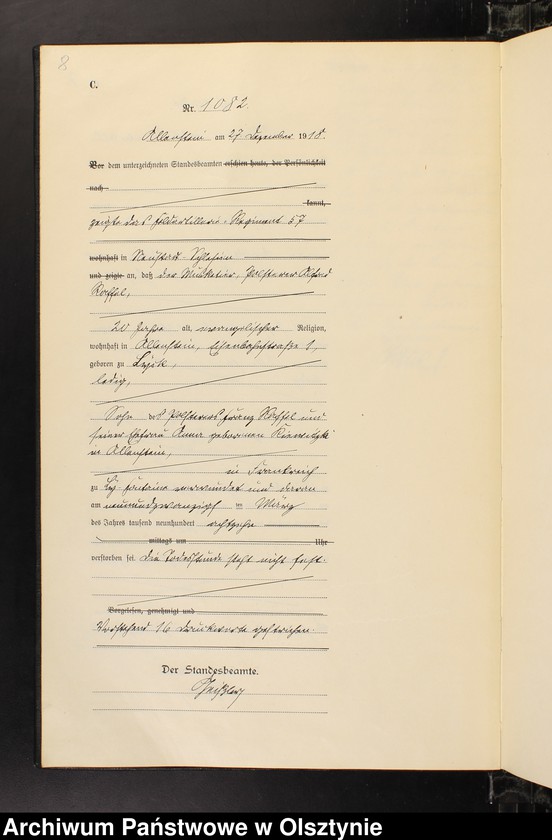 8
C.
Nr. 1082.
Allenstein am 27 Dezember 1918.
Vor dem unterzeichneten Standesbeamten erschien heute, der Persönlichkeit
nach
kannt,
zeigte das Feldartillerie-Regiment 57
wohnhaft in Neustadt-Schlesien
und zeigte an, daß der Musketier, Polsterer Alfred
20 Jahre alt, evangelischer Religion,
wohnhaft in Allenstein, 1,
geboren zu Lyck,
ledig,
Sohn des Polsterers Franz und
seiner Ehefrau Anna geborenen
in Allenstein,
in Frankreich
zu fontaine verwundet und daran
am neunundzwanzigsten März
des Jahres tausend neunhundert achtzehn
mittags um Uhr
verstorben sei. Die Todesstunde steht nicht fest.
Vorgelesen, genehmigt und
Vorstehend 16 Druckworte gestrichen.
Der Standesbeamte.
Archiwum Państwowe w Olsztynie